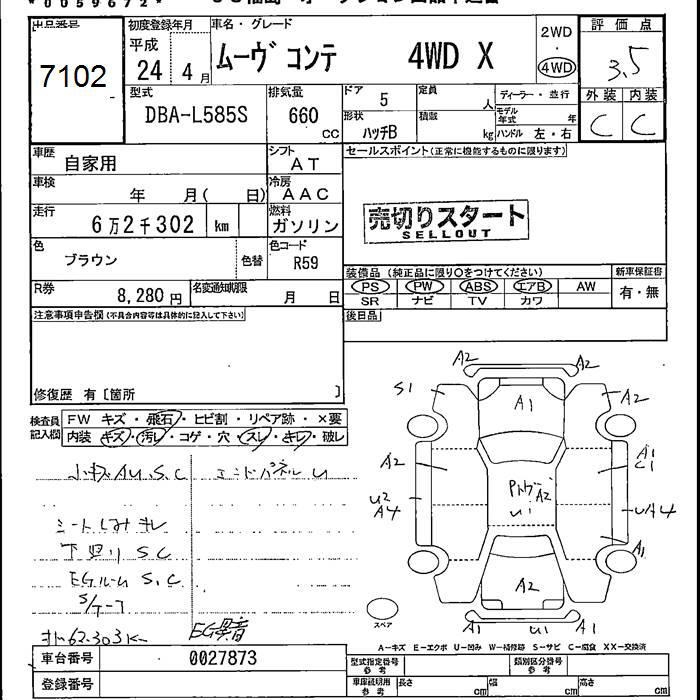 *0059672*
出品番号
7102
初度登録年月
平成
24年 4月
車名・グレード
ムーヴ コンテ 4WD X
2WD
・
4WD
評価点
3.5
外装 内装
C C
型式
DBA-L585S
排気量
660
cc
ドア
5
形状
ハッチB
定員
人
積載
kg
ディーラー・並行
モデル年式 年
ハンドル 左・右
車歴
自家用
シフト
AT
車検
年 月( 日)
冷房
AAC
走行
6万2千302 km
燃料
ガソリン
色
ブラウン
色替
色コード
R59
セールスポイント(正常に機能するものに限ります)
売切りスタート
SELLOUT
R券
8,280円
名変通知期限
月 日
装備品(純正品に限り○をつけてください)
PS PW ABS エアB AW
SR ナビ TV カワ
新車保証書
有・無
後日品
注意事項申告欄(不具合内容等は具体的に記入して下さい)
修復歴 有〔箇所 〕
検査員記入欄
FW キズ・飛石・ヒビ割・リペア跡・×要
内装 キズ・汚レ・コゲ・穴・スレ・キレ・破レ
小キズAU.S.C
エンドパネルU
シートしみキレ
下廻りS.C
EGルームS.C
S/ケース
オド62.303K
EG異音
A2 A2
S1 A1 A2
A2 A1
C1
U2
A4
A2
U1
UA4
A1
A2
A1 U1 A1
スペア
A-キズ E-エクボ U-凹み W-補修跡 S-サビ C-腐食 XX-交換済
車台番号
0027873
登録番号
型式指定番号
参考
類別区分番号
参考
車庫証明用
参考
長さ cm
幅 cm
高さ cm